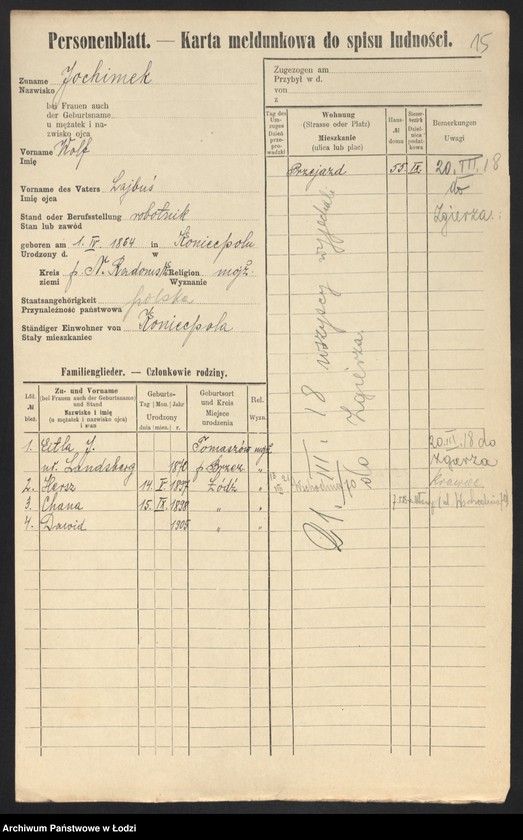 15
Personenblatt. — Karta meldunkowa do spisu ludności.
Zuname
Nazwisko
Jochimek
bei Frauen auch
der Geburtsname
u mężatek i na-
zwisko ojca
Vorname
Imię
Wolf
Vorname des Vaters
Imię ojca
Lajbuś
Stand oder Berufsstellung
Stan lub zawód
robotnik
geboren am 1. IV. 1864 in Koniecpolu
Urodzony d. w
Kreis p. N. Radomsk Religion mojż.
ziemi Wyznanie
Staatsangehörigkeit
Przynależność państwowa
polska
Ständiger Einwohner von
Stały mieszkaniec
Koniecpola
Zugezogen am
Przybył w d.
von
z
Tag des Um-
zuges
Dzień
prze-
prowadzki
Wohnung
(Strasse oder Platz)
Mieszkanie
(ulica lub plac)
Haus-
№
domu
Bemerkungen
Uwagi
Przejazd 55. IX. 20. III. 18
do
Zgierza.
21. III. 18 wszyscy wyjechali
do Zgierza.
Familienglieder. — Członkowie rodziny.
Lfd.
№
bież.
Zu- und Vorname
(bei Frauen auch der Geburtsname)
und Stand
Nazwisko i imię
(a mężatek i nazwisko ojca)
i stan
Geburts-
Tag | Mon. | Jahr
Urodzony
dnia | mies. | r.
Geburtsort
und Kreis
Miejsce
urodzenia
Rel.
Wyzn.
1. Eitla J. Tomaszów mojż.
ur. Landsberg 1870 p. Brzez. "
2. Hersz 14. I. 1897 Łódź "
3. Chana 15. IX. 1898 " "
4. Dawid 1905 " "
20. III. 18 do
Zgierza
Archiwum Państwowe w Łodzi